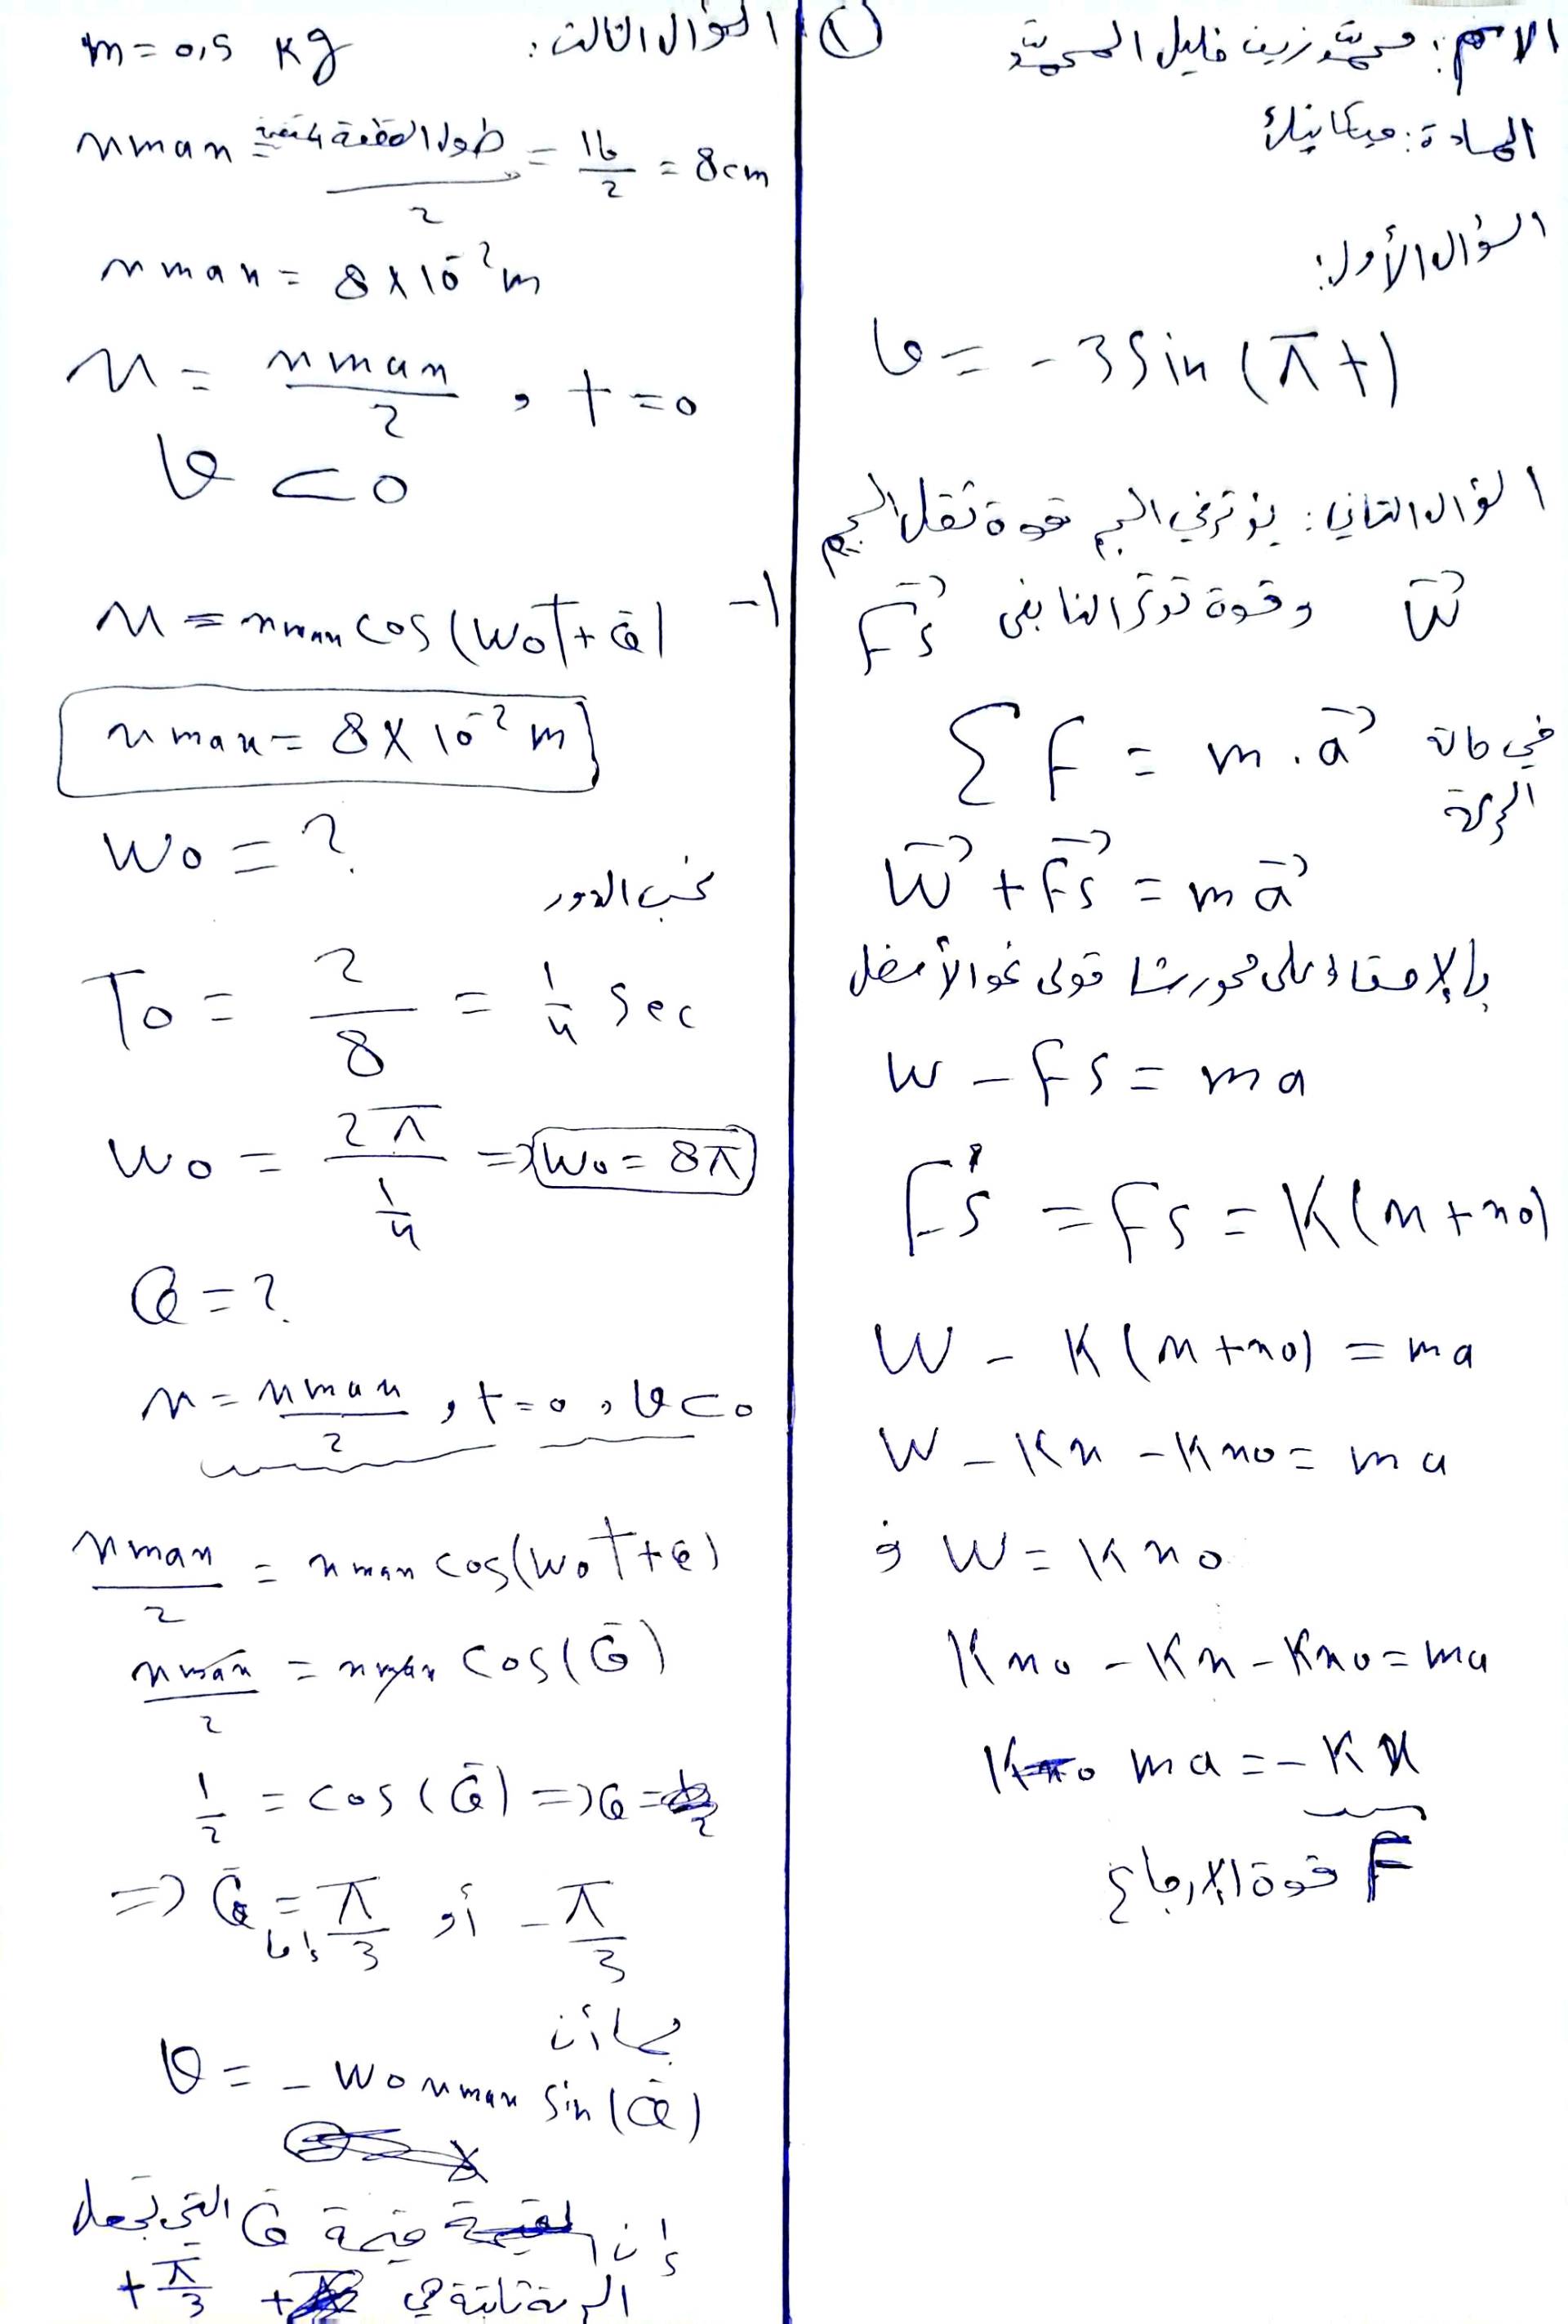 الاسم: محمّد زين خليل المحمّد
المادة: ميكانيك
السؤال الأول:
v = - 3 Sin (π t)
السؤال الثاني: يؤثر في الجسم قوة ثقل الجسم
W⃗ وقوة توتر النابض F⃗s
في حالة الحركة
Σ F = m . a⃗
W⃗ + F⃗s = m a⃗
بالإسقاط على محور شاقولي نحو الأسفل
W - Fs = ma
F's = Fs = K (x + x0)
W - K (x + x0) = ma
W - Kx - Kx0 = ma
W = Kx0
Kx0 - Kx - Kx0 = ma
ma = - K x
F قوة الإرجاع
١
السؤال الثالث: m = 0,5 kg
xmax = طول القطعة المستقيمة / 2 = 16/2 = 8 cm
xmax = 8 × 10⁻² m
x = xmax/2 , t = 0
v < 0
1- x = xmax cos (ω0 t + φ̄)
xmax = 8 × 10⁻² m
ω0 = ?
نحسب الدور
T0 = 2/8 = 1/4 sec
ω0 = 2π / 1/4 => ω0 = 8π
φ = ?
x = xmax/2 , t = 0 , v < 0
xmax/2 = xmax cos (ω0 t + φ)
xmax/2 = xmax cos (φ̄)
1/2 = cos (φ̄) => φ =
=> φ̄ = إما π/3 أو - π/3
بما أن
v = - ω0 xmax sin (φ̄)
إن قيمة φ̄ التي تجعل
هي + π/3